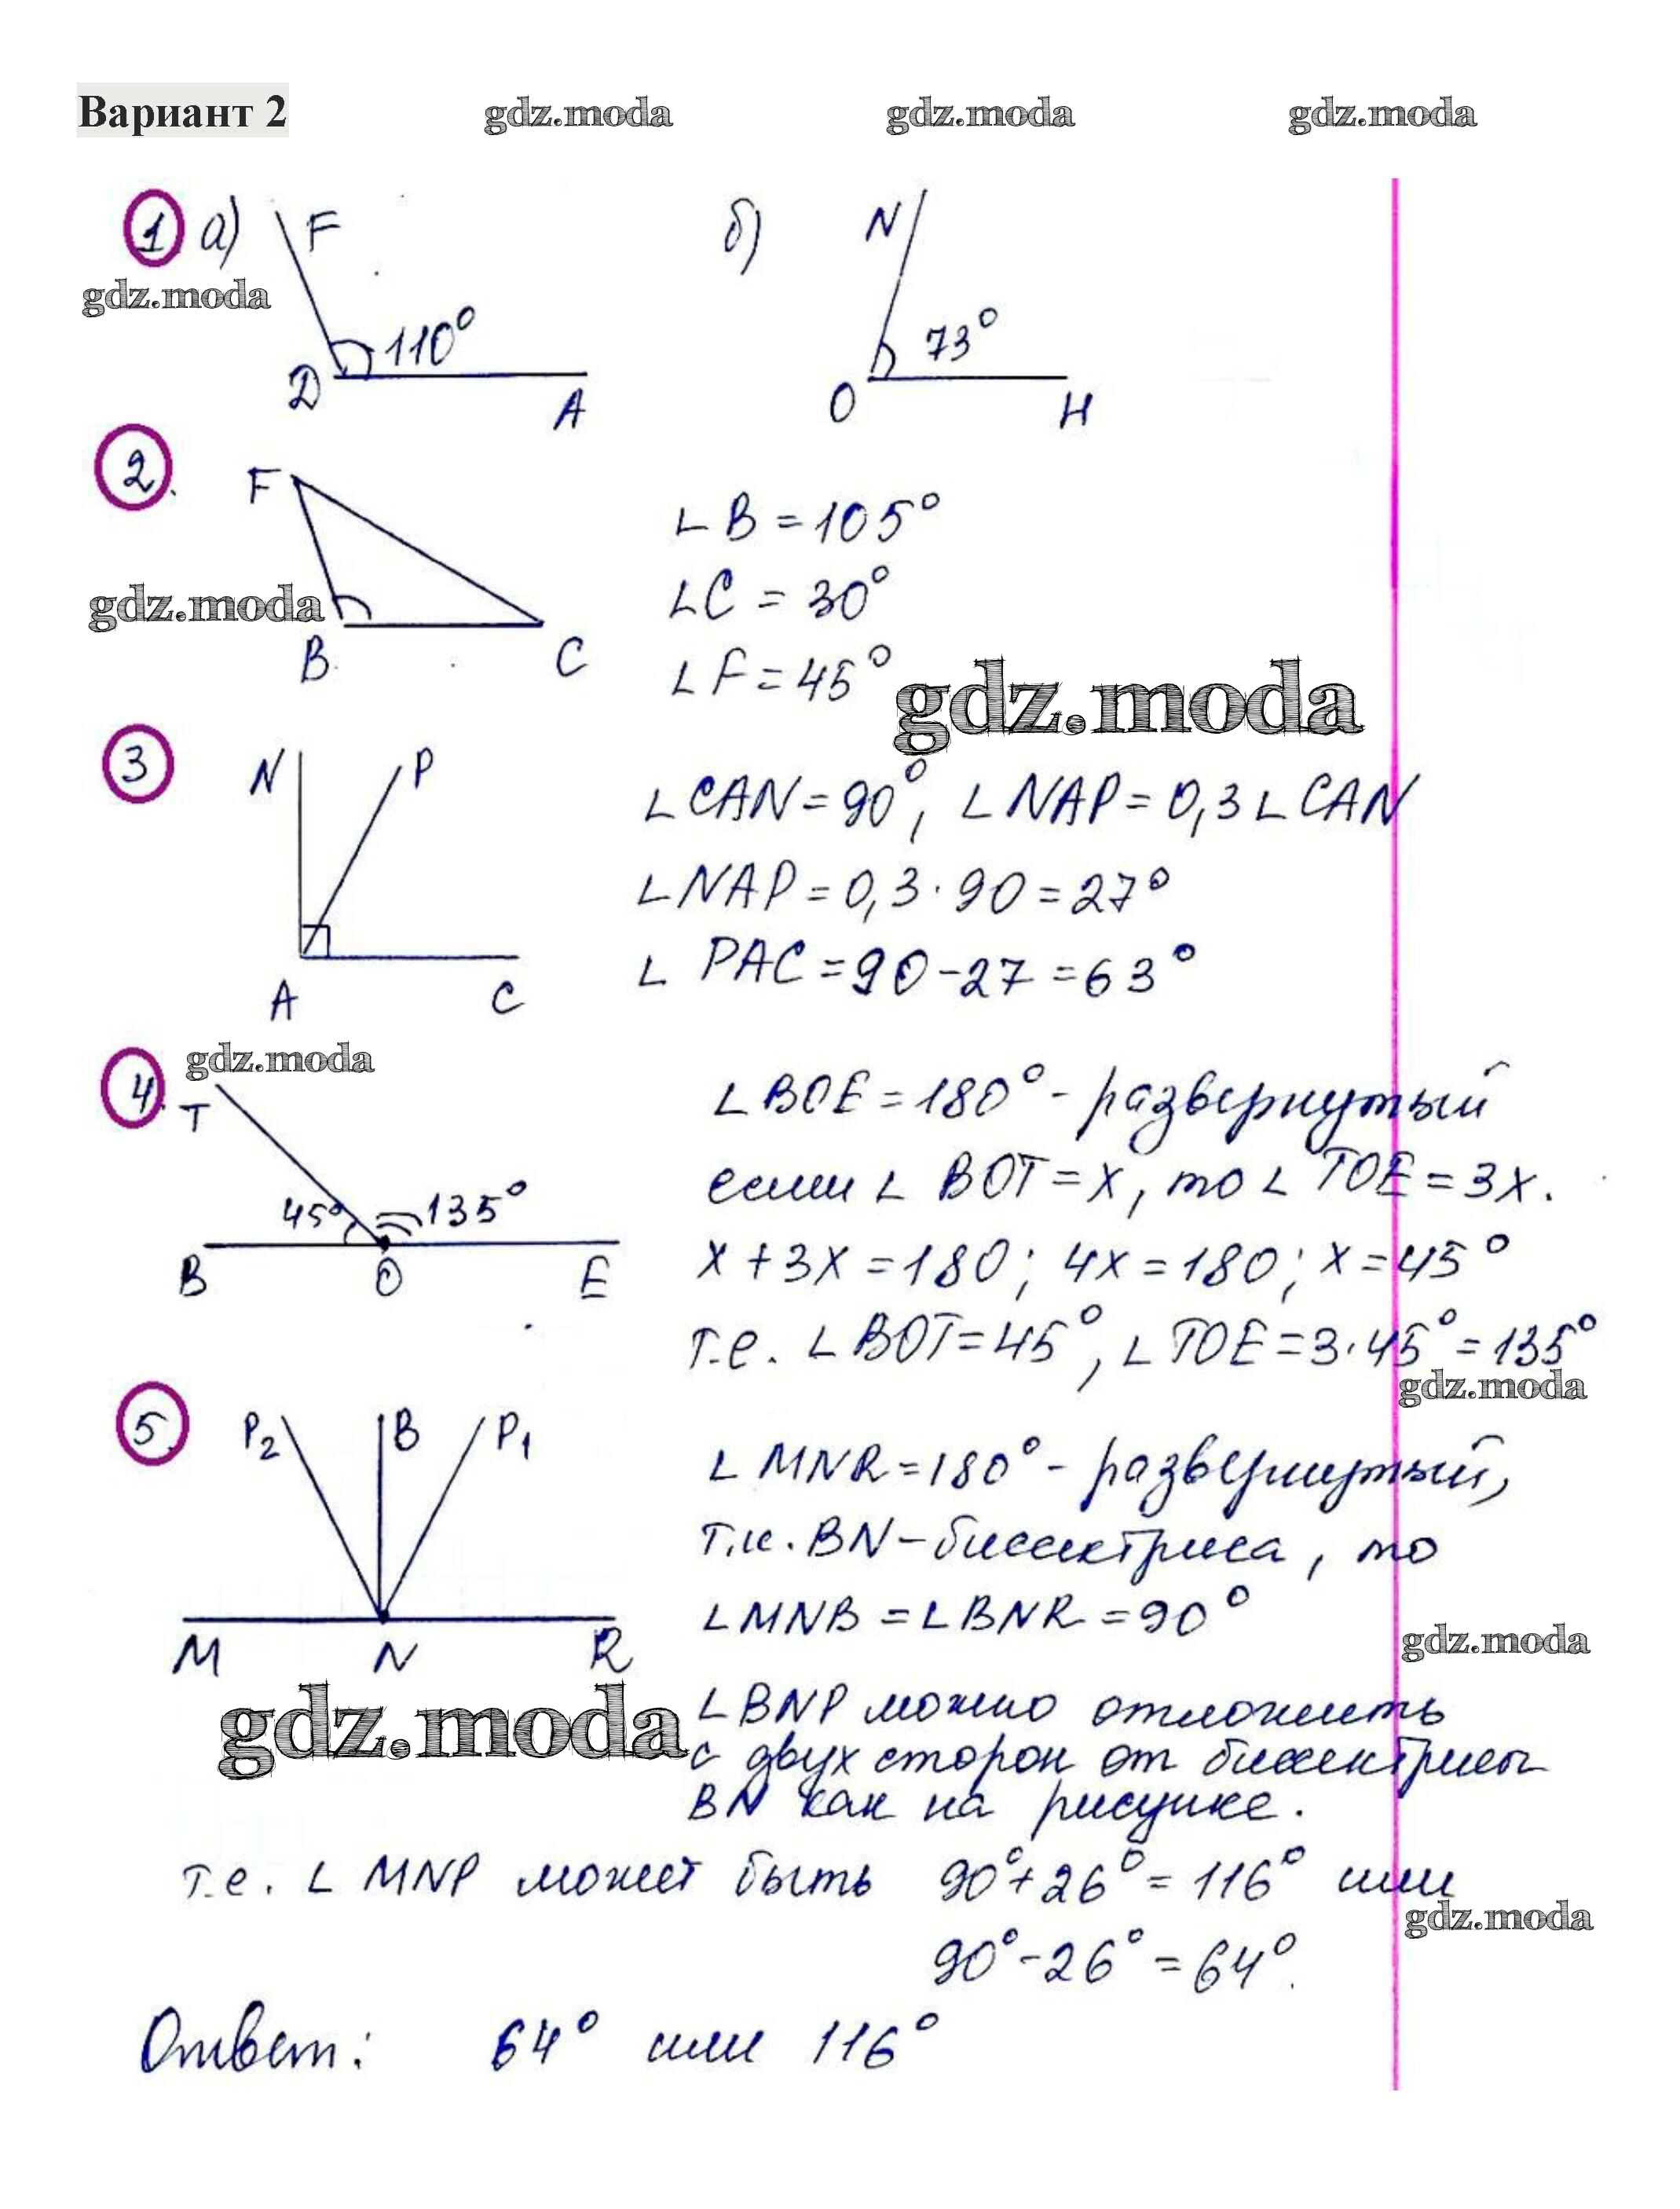 Вариант 2
gdz.moda gdz.moda gdz.moda
1 а) F 110° D A
б) N 73° O H
gdz.moda
2. F B C
∠B = 105°
∠C = 30°
∠F = 45°
gdz.moda
gdz.moda
3 N P A C
∠CAN = 90°, ∠NAP = 0,3∠CAN
∠NAP = 0,3 · 90 = 27°
∠PAC = 90 - 27 = 63°
gdz.moda
4. T 45° 135° B O E
∠BOE = 180° - развернутый
если ∠BOT = x, то ∠TOE = 3x.
x + 3x = 180; 4x = 180; x = 45°
т.е. ∠BOT = 45°, ∠TOE = 3·45° = 135°
gdz.moda
5. P2 B P1 M N R
∠MNR = 180° - развернутый,
т.к. BN - биссектриса, то
∠MNB = ∠BNR = 90°
gdz.moda
gdz.moda
∠BNP можно отложить
с двух сторон от биссектрисы
BN как на рисунке.
т.е. ∠MNP может быть 90° + 26° = 116° или
gdz.moda
90° - 26° = 64°.
Ответ: 64° или 116°